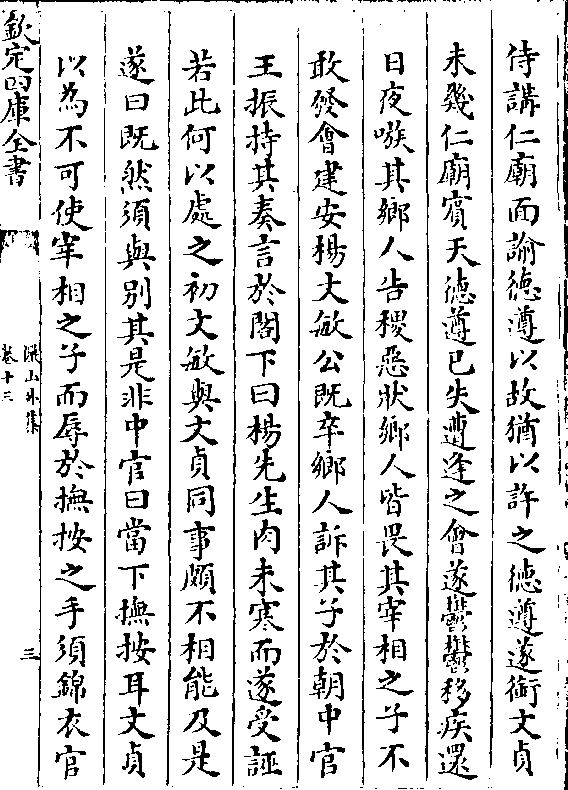 侍講仁廟面諭德遵以故猶以許之德遵遂銜文貞
未幾仁廟賓天德遵已失遭逢之會遂鬱鬱移疾還
日夜嗾其鄉人告稷惡狀鄉人皆畏其宰相之子不
敢發會建安楊文敏公既卒鄉人訴其子於朝中官
王振持其奏言於閣下曰楊先生肉未寒而遂受誣
若此何以處之初文敏與文貞同事頗不相能及是
遂曰既然須與別其是非中官曰當下撫按耳文貞
以為不可使宰相之子而辱於撫按之手須錦衣官
欽定四庫全書
儼山外集
卷十三
三